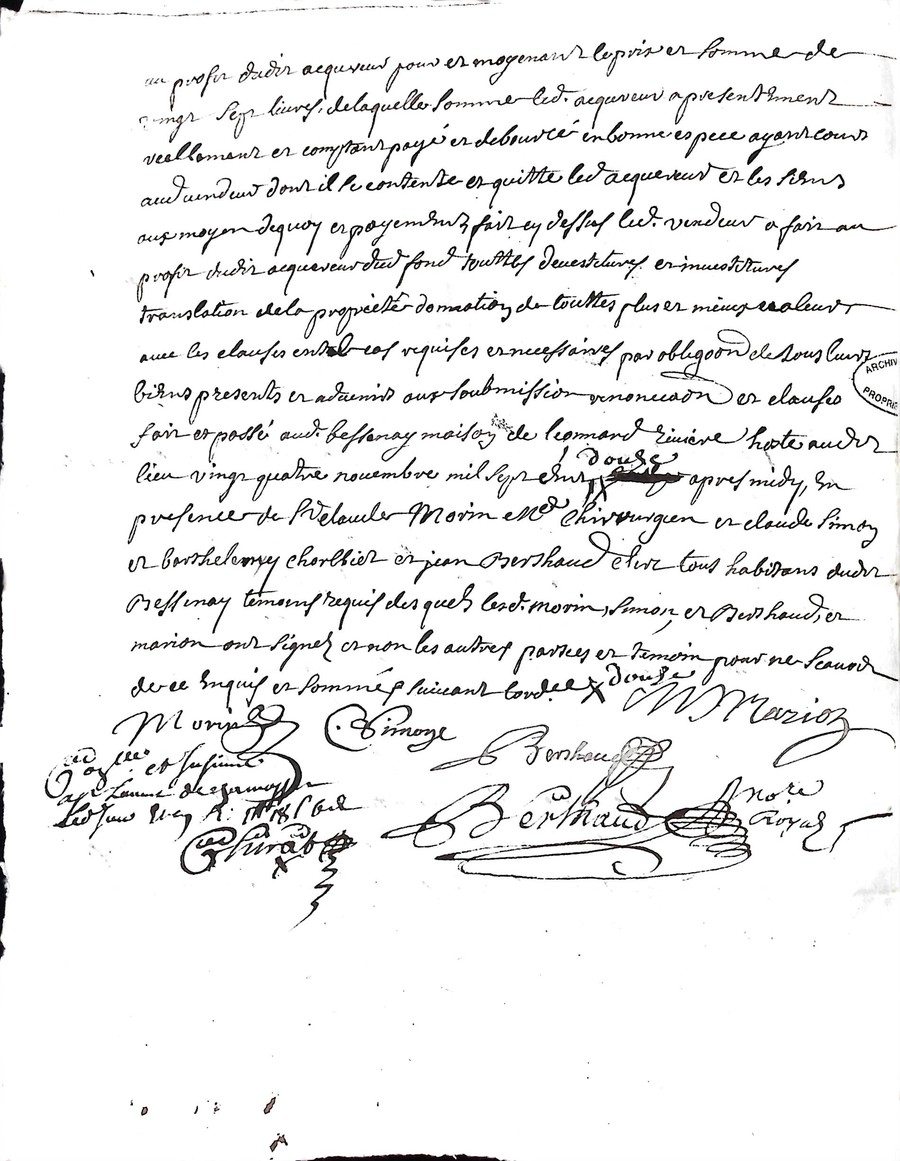 au profit dudit acquereur pour et moyenant le prix et somme de
vingt sept livres, de laquelle somme led. acquereur a presentement
reellement et comptant payé et deboursé en bonne espece ayant cours
aud vendeur dont il se contente et quitte led acquereur et les siens
aux moyen dequoy et payement fait cy dessus led. vendeur a fait au
profit dudit acquereur dud fond touttes devestitures et investitures
translation de la proprieté donnation de touttes plus et mieux valeurs
avec les clauses en tel cas requises et necessaires par obligaon de tous leurs
biens presents et advenirs aux soubmission renonciaon et clauses
fait et passé aud. bessenay maison de leonnard riviere hoste audit
lieu vingt quatre novembre mil sept cent douze apres midy, En
presence de Sr claude Morin Me Chirurgien et claude Simon
et barthelemy charbliet et jean Berthaud clerc tous habitans dudit
Bessenay temoins requis des quels lesd. morin, Simon, et Berthaud, et
marion ont signez et non les autres parties et temoin pour ne scavoir
de ce Enquis et sommés suivant lord. X douze
Marion
Morin C. Simone
Berthaud
Berthaud Nore Royal
ARCHIV
PROPRIE